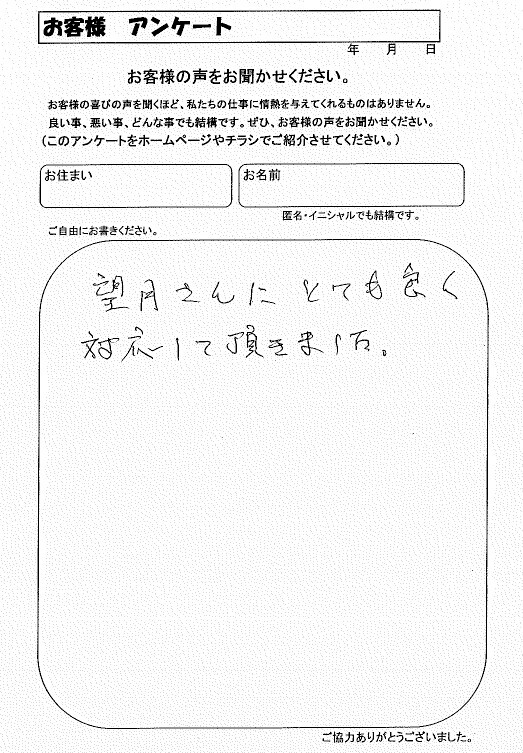 お客様 アンケート
年 月 日
お客様の声をお聞かせください。
お客様の喜びの声を聞くほど、私たちの仕事に情熱を与えてくれるものはありません。
良い事、悪い事、どんな事でも結構です。ぜひ、お客様の声をお聞かせください。
(このアンケートをホームページやチラシでご紹介させてください。)
お住まい
お名前
匿名・イニシャルでも結構です。
ご自由にお書きください。
望月さんに とても良く
対応して頂きました。
ご協力ありがとうございました。